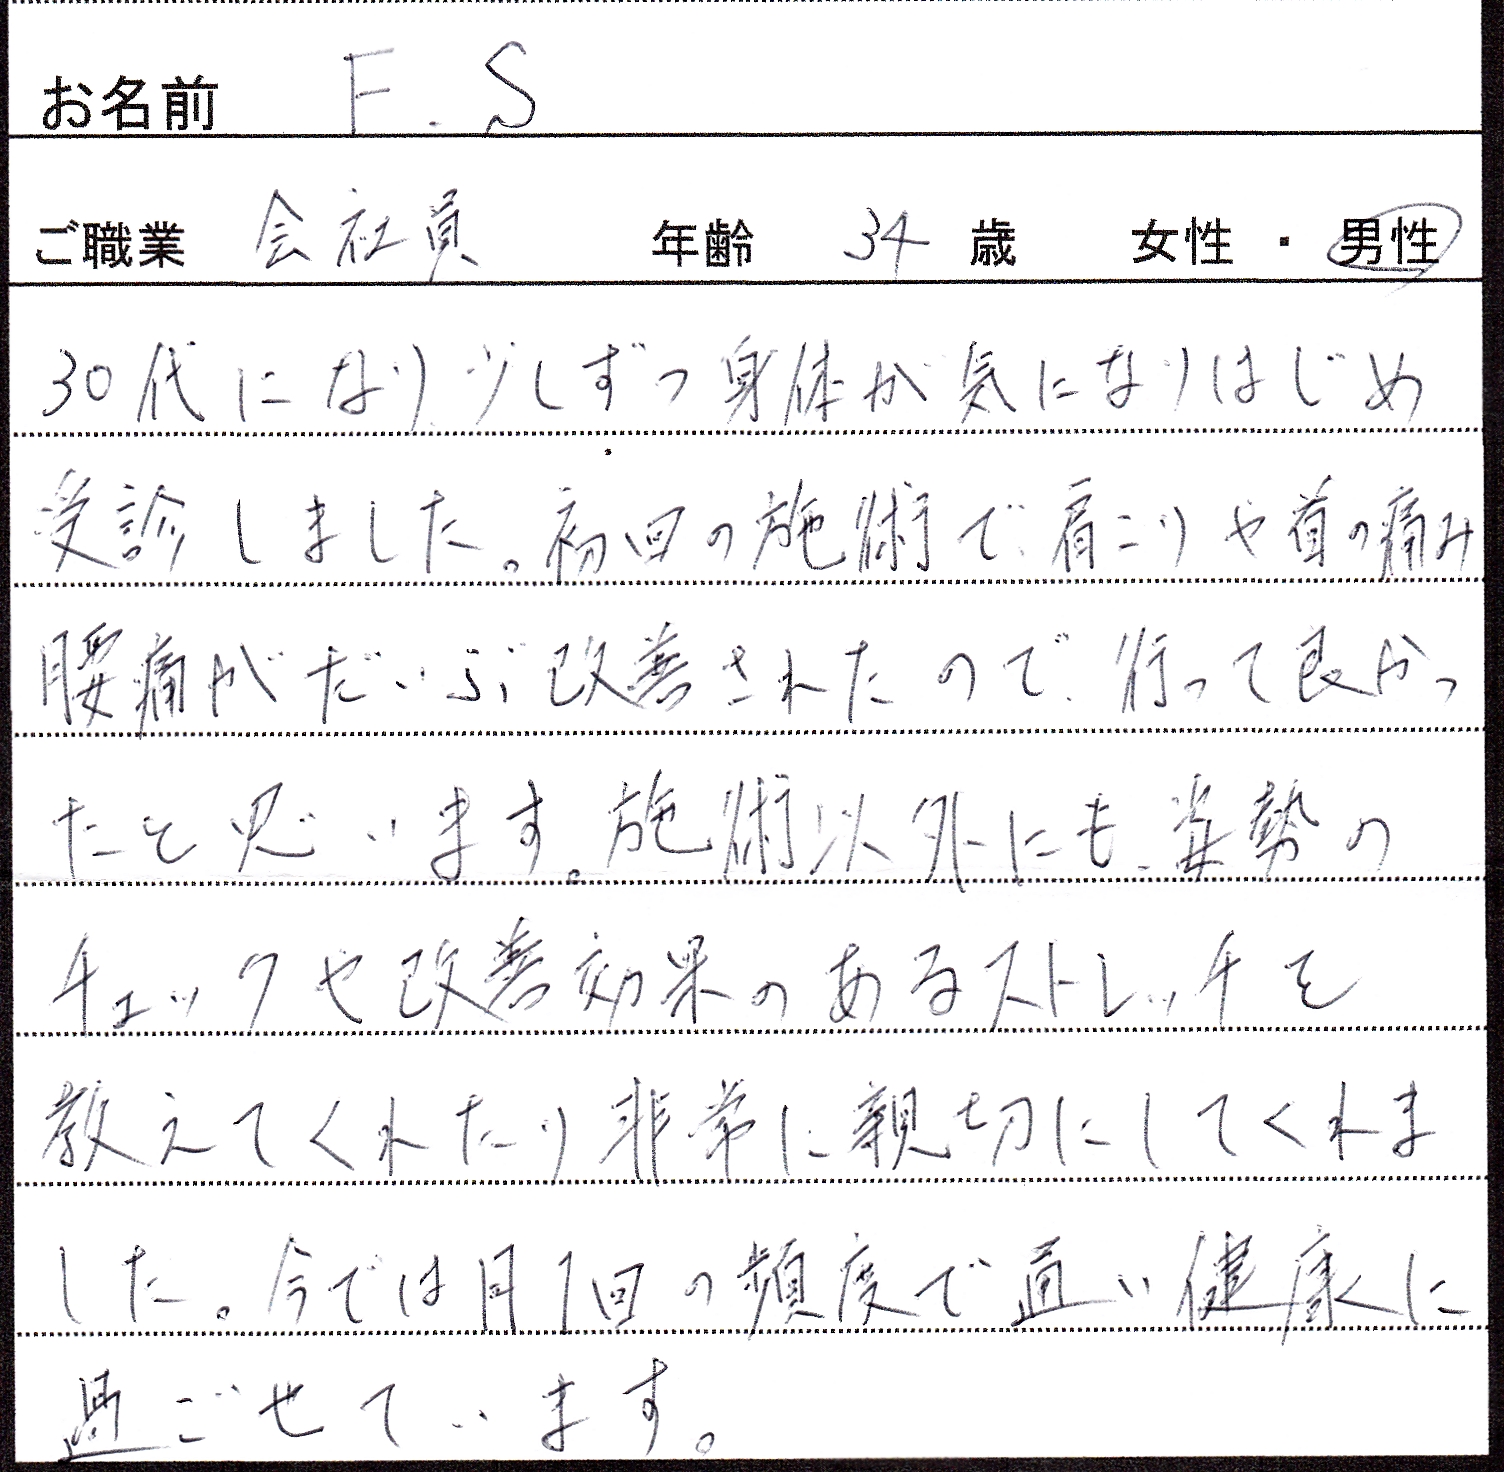 お名前 F.S
ご職業 会社員 年齢 34 歳 女性 ・ 男性
30代になり少しずつ身体が気になりはじめ
受診しました。初回の施術で、肩こりや首の痛み
腰痛がだいぶ改善されたので、行って良かっ
たと思います。施術以外にも、姿勢の
チェックや改善効果のあるストレッチを
教えてくれたり非常に親切にしてくれま
した。今では月1回の頻度で通い健康に
過ごせています。